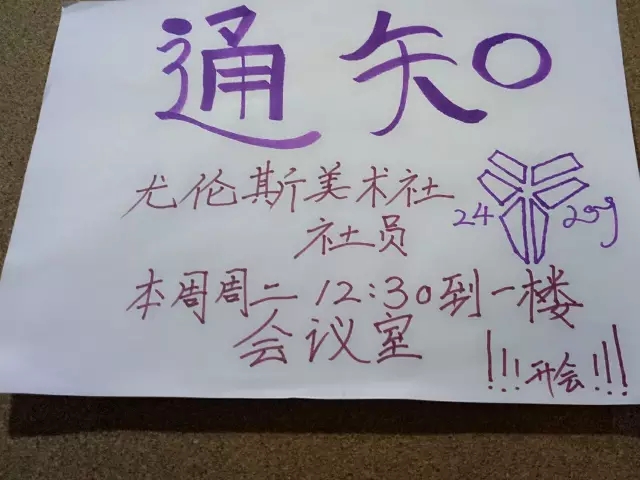 通知
尤伦斯美术社
社员
24
本周周二 12:30到一楼
会议室
!!!开会!!!